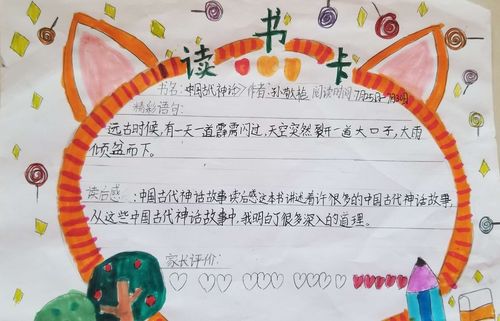 读书卡
书名:中国古代神话》作者:孙敬芝 阅读时间7月25日-7月30日
精彩语句:
远古时候,有一天一道霹雳闪过,天空突然裂开一道大口子,大雨
倾盆而下。
读后感:中国古代神话故事读后感这本书讲述着许很多的中国古代神话故事,
从这些中国古代神话故事中,我明白了很多深入的道理。
家长评价: